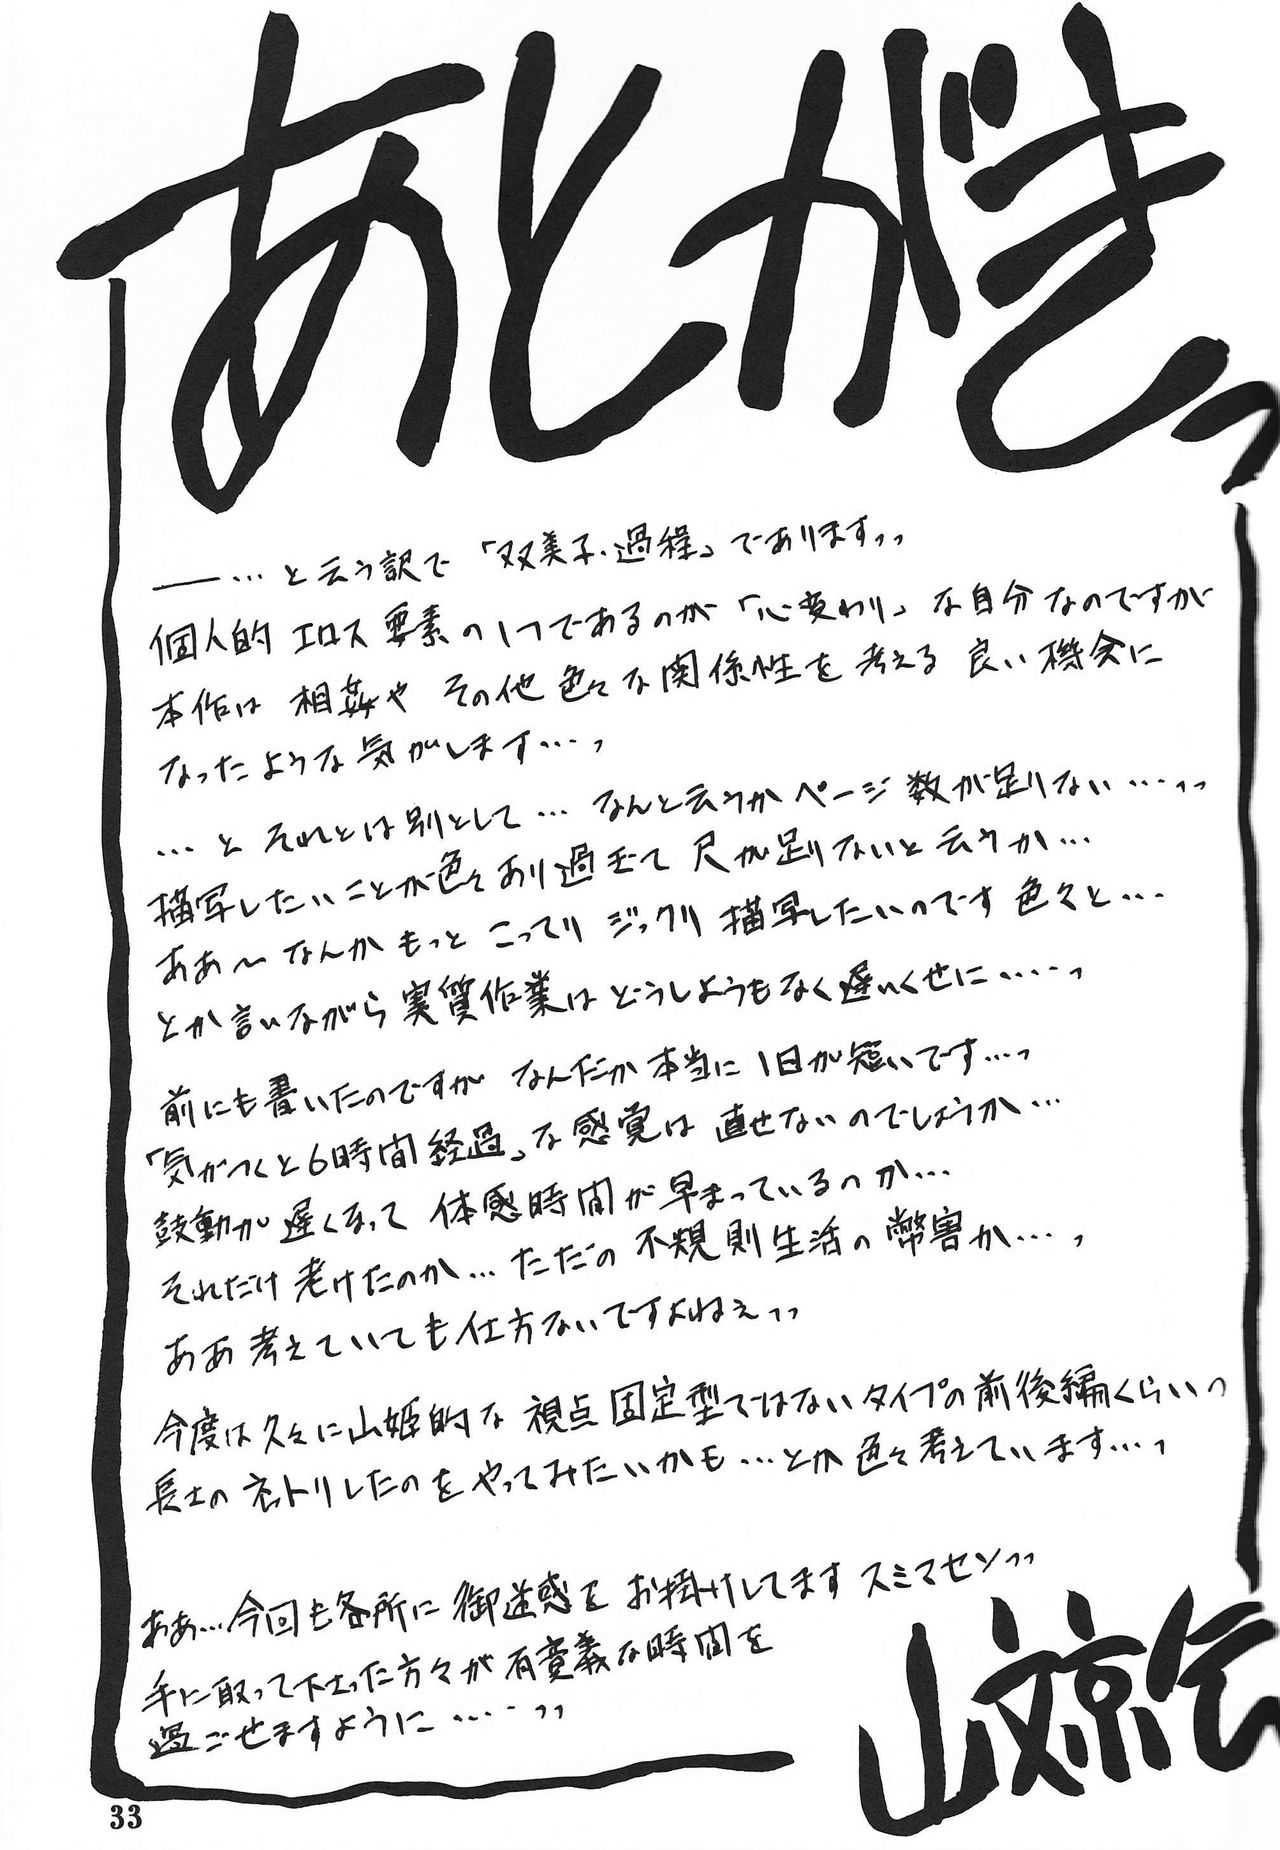 あとがきっ
――…と云う訳で「双美子・過程」でありますっっ
個人的エロス要素の1つであるのが「心変わり」な自分なのですが
本作は相姦やその他色々な関係性を考える良い機会に
なったような気がします…っ
…とそれとは別として…なんと云うかページ数が足りない…っっ
描写したいことが色々あり過ぎて尺が足りないと云うか…
ああ～なんかもっとこってりジックリ描写したいのです色々と…
とか言いながら実質作業はどうしようもなく遅いくせに……っ
前にも書いたのですがなんだか本当に1日が短いです…っ
「気がつくと6時間経過」な感覚は直せないのでしょうか…
鼓動が遅くなって体感時間が早まっているのか…
それだけ老けたのか…ただの不規則生活の弊害か…っ
ああ考えていても仕方ないですよねぇっっ
今度は久々に山姫的な視点固定型ではないタイプの前後編くらいっ
長士のネットリしたのをやってみたいかも…とか色々考えています…っ
ああ…今回も各所に御迷惑をお掛けしてますスミマセンっっ
手に取って下さった方々が有意義な時間を
過ごせますように……っっ
山文京伝
33